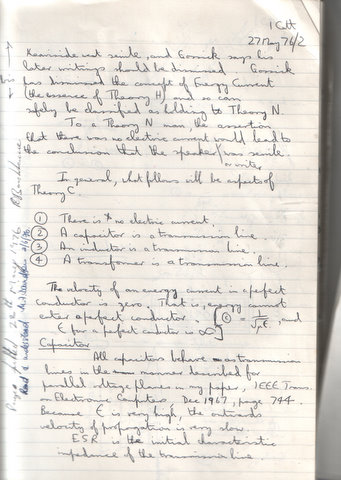 I Catt
27 May 76/2
Heaviside went senile, and Gossick says his
later writings should be dismissed Gossick
has dismissed the concept of Energy Current
(the essence of Theory H) and so can
safely be classified as holding to Theory N.
To a Theory N man, the assertion
that there was no electric current would lead to
the conclusion that the speaker was senile.
or writer
In general, what follows will be aspects of
Theory C.
① There is no electric current
② A capacitor is a transmission line.
③ An inductor is a transmission line.
④ A transformer is a transmission line.
The velocity of an energy current in a perfect
conductor is zero. That is, energy cannot
enter a perfect conductor. [C = 1/√με, and
ε for a perfect conductor is ∞]
Capacitor
All capacitors behave as transmission
lines in the manner described for
parallel voltage planes in my paper, IEEE Trans.
on Electronic Computers, Dec 1967, page 744.
Because ε is very high, the outwards
velocity of propagation is very slow.
E.S.R. is the initial characteristic
impedance of the transmission line.
Page filled 27th May 1976
Read & understood